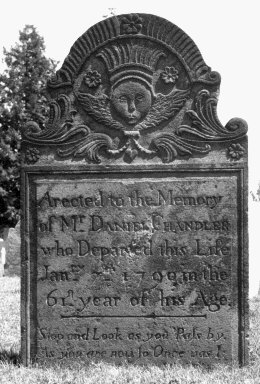 Arected to the Memory
of Mr. DANIEL CHANDLER
who Departed this Life
Janry. 1790 in the
61st year of his Age.
Stop and Look as you Pass by,
as you are now so Once was I.